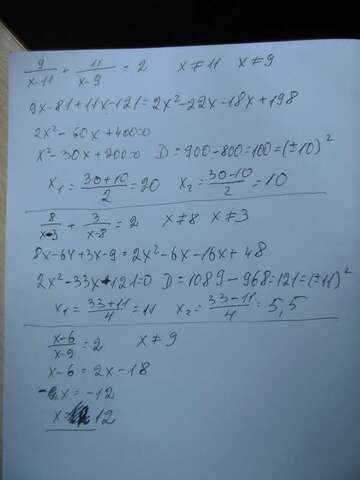 9/(x-11) + 11/(x-9) = 2 x ≠ 11 x ≠ 9
9x-81+11x-121=2x²-22x-18x+198
2x²-60x+400=0
x²-30x+200=0 D=900-800=100=(±10)²
x₁=(30+10)/2=20 x₂=(30-10)/2=10
8/(x-3) + 3/(x-8) = 2 x ≠ 8 x ≠ 3
8x-64+3x-9=2x²-6x-16x+48
2x²-33x+121=0 D=1089-968=121=(±11)²
x₁=(33+11)/4=11 x₂=(33-11)/4=5,5
(x-6)/(x-9)=2 x ≠ 9
x-6=2x-18
-x=-12
x=12